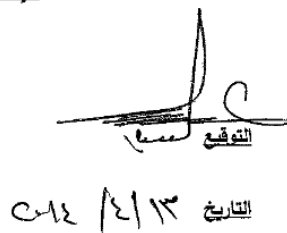 التوقيع
التاريخ ١٣/٤/٢٠١٤